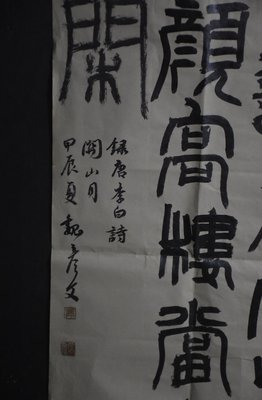 顏高樓當
閑
錄唐李白詩
關山月
甲辰夏 魏彥文